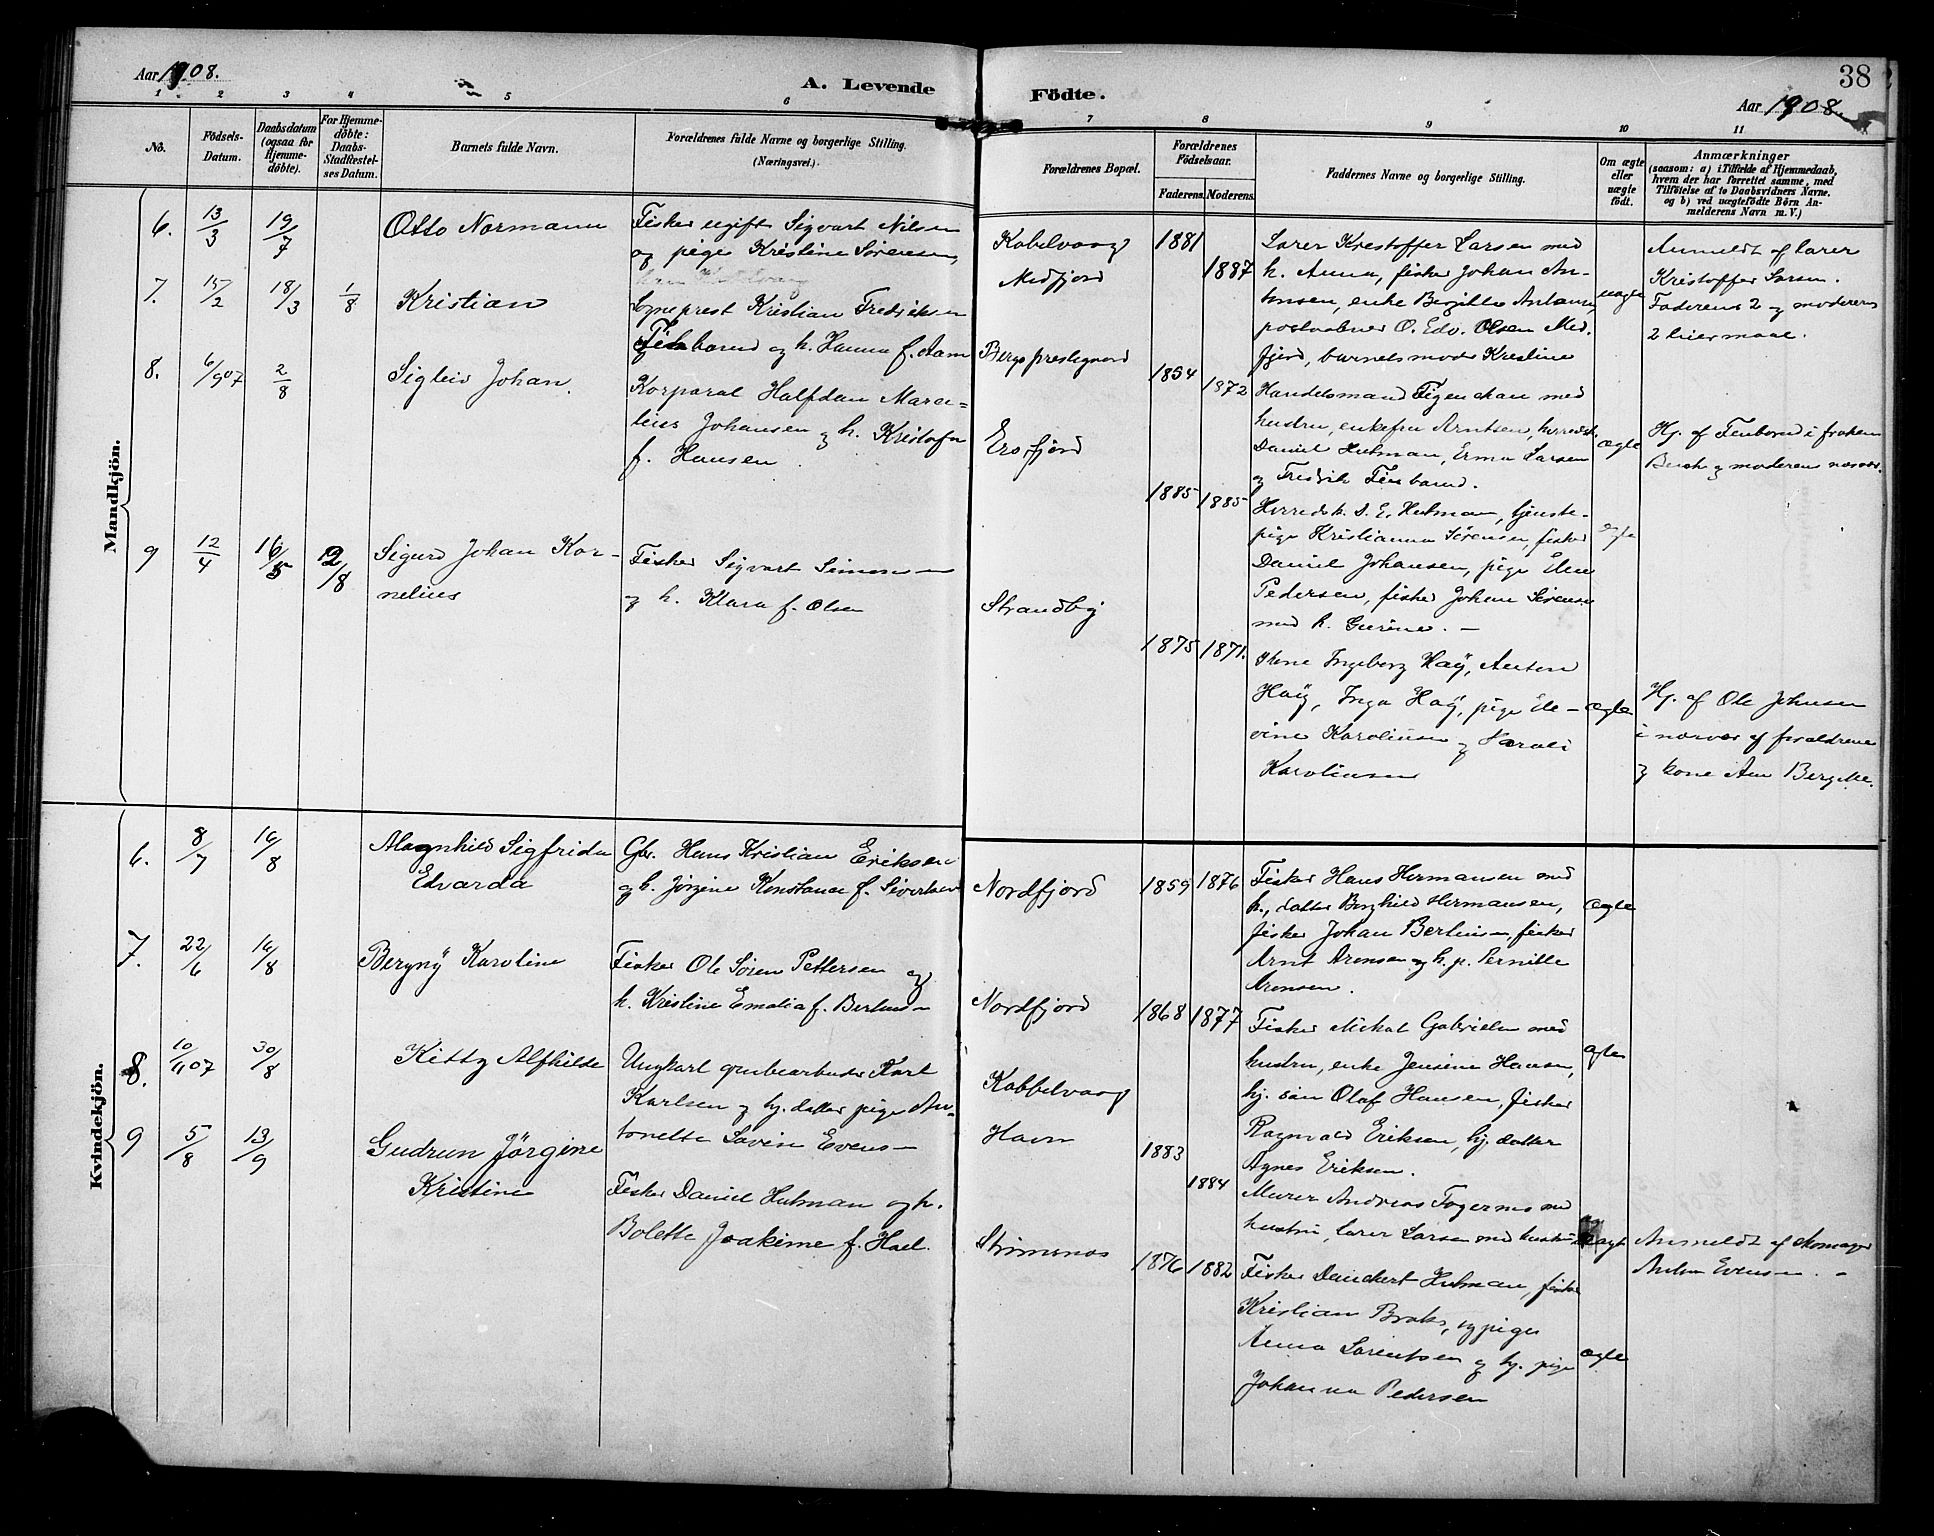 Aar 1908.
A. Levende
1 2 3 4 5 6
No.
Födsels-
Datum.
Daabsdatum
(ogsaa for
Hjemme-
döbte).
For Hjemme-
döbte:
Daabs-
Stadfestel-
ses Datum.
Barnets fulde Navn.
Forældrenes fulde Navne og borgerlige Stilling.
(Næringsvei).
Mandkjön.
6. 13/3 19/7 Otto Normann
Fisker ugift Sigvart Nilsen
og pige Kristine Sörensen,
7. 15/2 18/3 1/8 Kristian
Sogneprest Kristian Fredriksen
og h. Hanna f. Aam
8. 6/9 07 2/8 Sigleiv Johan.
Korporal Halfdan Marei=
lius Johansen og h. Kristofa
f. Hansen.
9 12/4 16/5 2/8 Sigurd Johan Kor-
nelius
Fisker Sigvart Simonsen
og h. Klara f. Olsen
Kvindekjön.
6. 8/7 16/8 Magnhild Sigfrida
Edvarda
Gbr. Hans Kristian Eriksen
og h. Jörgine Konstance f. Sivertsen
7. 22/6 16/8 Bergny Karoline
Fisker Ole Sören Pettersen og
h. Kristine Emelia f. Berthus-
8. 10/11 07 30/8 Kitty Alfhilde
Ungkarl grubearbeider Karl
Karlsen og hj. datter pige An-
tonette Lovise Evens-
9 5/8 13/9 Gudrun Jörgine
Kristine
Fisker Daniel Hutman og h.
Bolette Joakime f. Hael.
38
Födte.
Aar 1908.
7 8 9 10 11
Forældrenes Bopæl.
Forældrenes
Födselsaar.
Faderens. Moderens.
Faddernes Navne og borgerlige Stilling.
Om ægte
eller
uægte
födt.
Anmærkninger
(saasom: a) i Tilfælde af Hjemmedaab,
hvem der har forrettet samme, med
Tilföielse af to Daabsvidners Navne.
og b) ved uægtefödte Börn An-
melderens Navn m. V.)
Kobelvaag
Medfjord
1881
1887
Lærer Kristoffer Larsen med
h. Anna, fisker Johan An-
tonsen, enke Birgitte Antonsen,
postaabner O. Edv. Olsen Med-
fjord, barnets moder Kristine
uægte
Anmeldt af lærer
Kristoffer Larsen.
Faderens 2 og moderens
2 leiermaal.
Bergs prestegaard
1854
1872
Handelsmand Figenschau med
hustru, enkefru Arntsen, herredsk.
Daniel Hutman, Erma Larsen
og Fredrik Finbarud.
ægte
Hj. af Finborud i fröken
Buch og moderens nærvær.
Ersfjord
1885
1885
Herredsk. D. E. Hutman, tjeneste-
pige Kristianna Sörensen, fisker
Daniel Johansen, pige Elen
Pedersen, fisker Johan Sörensen
med h. Gurine. -
ægte
Strandby
1875 1871.
Kone Ingeborg Haÿ, Anton
Haÿ, Inga Haÿ, pige El-
vine Karoliusen og Harald
Karoliusen
ægte
Hj. af Ole Johnsen
i nærvær af forældrene
og kone Ane Bergitte.
Nordfjord
1859 1876
Fisker Hans Hermansen med
h., datter Borghild Hermansen,
fisker Johan Berthusen, fisker
Arnt Aronsen og h. p. Pernille
Aronsen.
ægte
Nordfjord
1868 1877
Fisker Mikal Gabrielsen med
hustru, enke Jensine Hansen,
hj. sön Olaf Hansen, fisker
Ragnvald Eriksen, hj. datter
Agnes Eriksen.
ægte
Kobbelvaag
Havn
1883
1884
Murer Andreas Fagernes med
hustru, lærer Larsen med hustru
uægt
Anmeldt af skomager
Anton Evensen. -
Strömsnes
1876 1882
Fisker Danckert Hutman, fisker
Kristian Broks, og pige
Anna Lorentsen og hj. pige
Johanna Pedersen
ægte